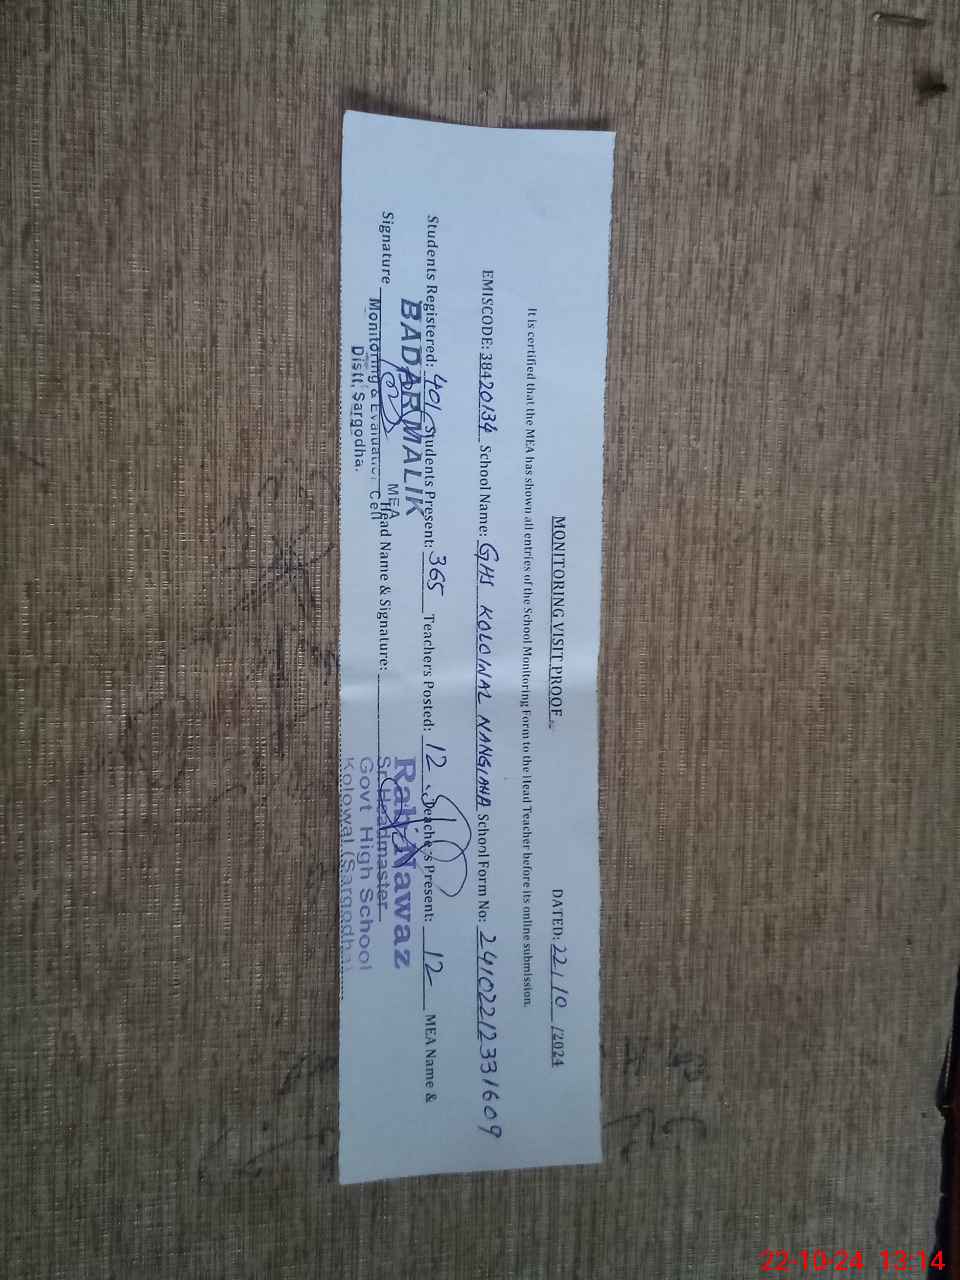 MONITORING VISIT PROOF
DATED: 22/10/2024
It is certified that the MEA has shown all entries of the School Monitoring Form to the Head Teacher before its online submission.
EMISCODE: 38420134 School Name: GHS KOLOWAL NANGIANA School Form No: 241022123331609
Students Registered: 401 Students Present: 365 Teachers Posted: 12 Teachers Present: 12 MEA Name &
Signature Head Name & Signature:
BADAR MALIK
MEA
Monitoring & Evaluation Cell
Distt. Sargodha.
Rab Nawaz
Sr. Headmaster
Govt High School
Kolowal (Sargodha)
22-10-24 13:14